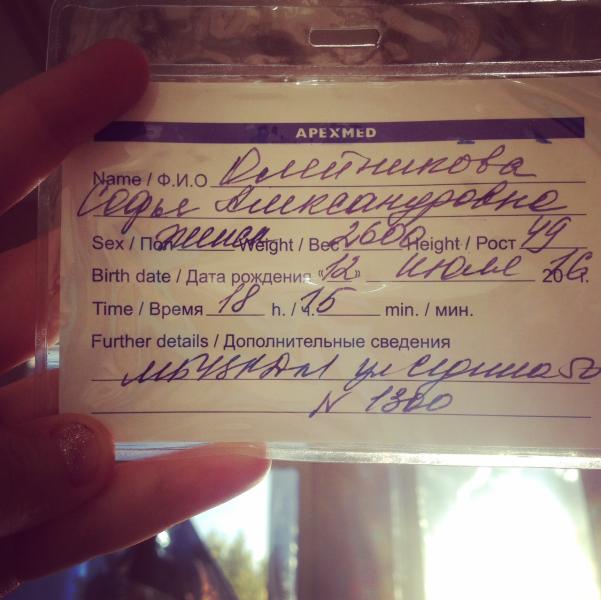 APEXMED
Name / Ф.И.О Олейникова
Софья Александровна
Sex / Пол женск Weight / Вес 2600 Height / Рост 49
Birth date / Дата рождения «12» июля 2016.
Time / Время 18 h. / ч. 15 min. / мин.
Further details / Дополнительные сведения
ул
N 1300